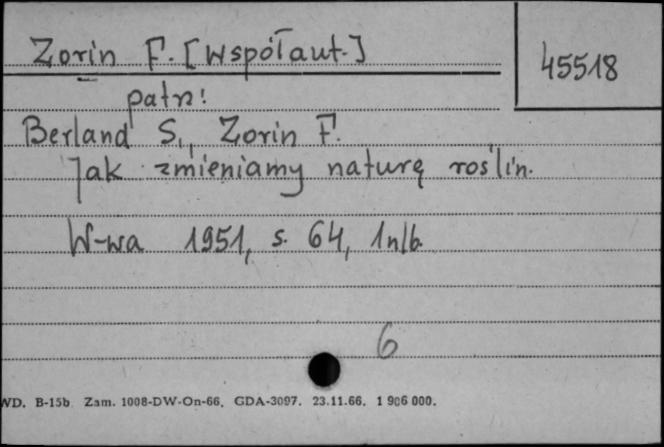 Zorin F. [współaut.]
45518
patrz:
Berland S., Zorin F.
Jak zmieniamy naturę roślin.
W-wa 1951, s. 64, 1 nlb.
6
WD. B-15b Zam. 1008-DW-On-66. GDA-3097. 23.11.66. 1 906 000.